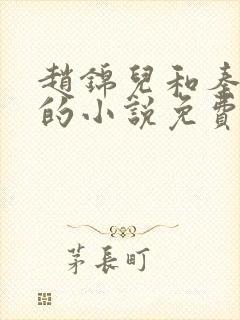 趙錦兒和
的小說免費
茅長町